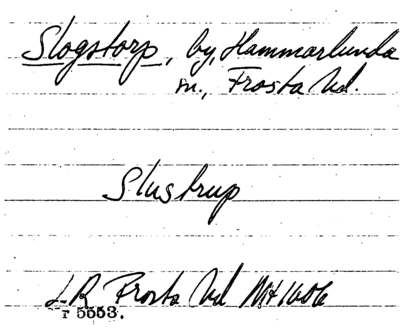 Slogstorp, by, Hammarlunda
sn., Frosta hd.
Slustrup
LR Frosta hd Mt 1606
r 5553.